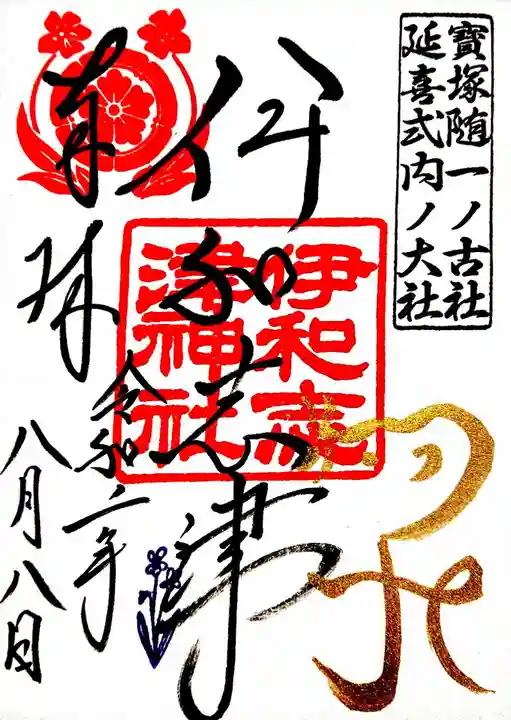 寳塚随一ノ古社
延喜式内ノ大社
伊和志津
伊和志
津神社
奉拝
令和二年
八月八日